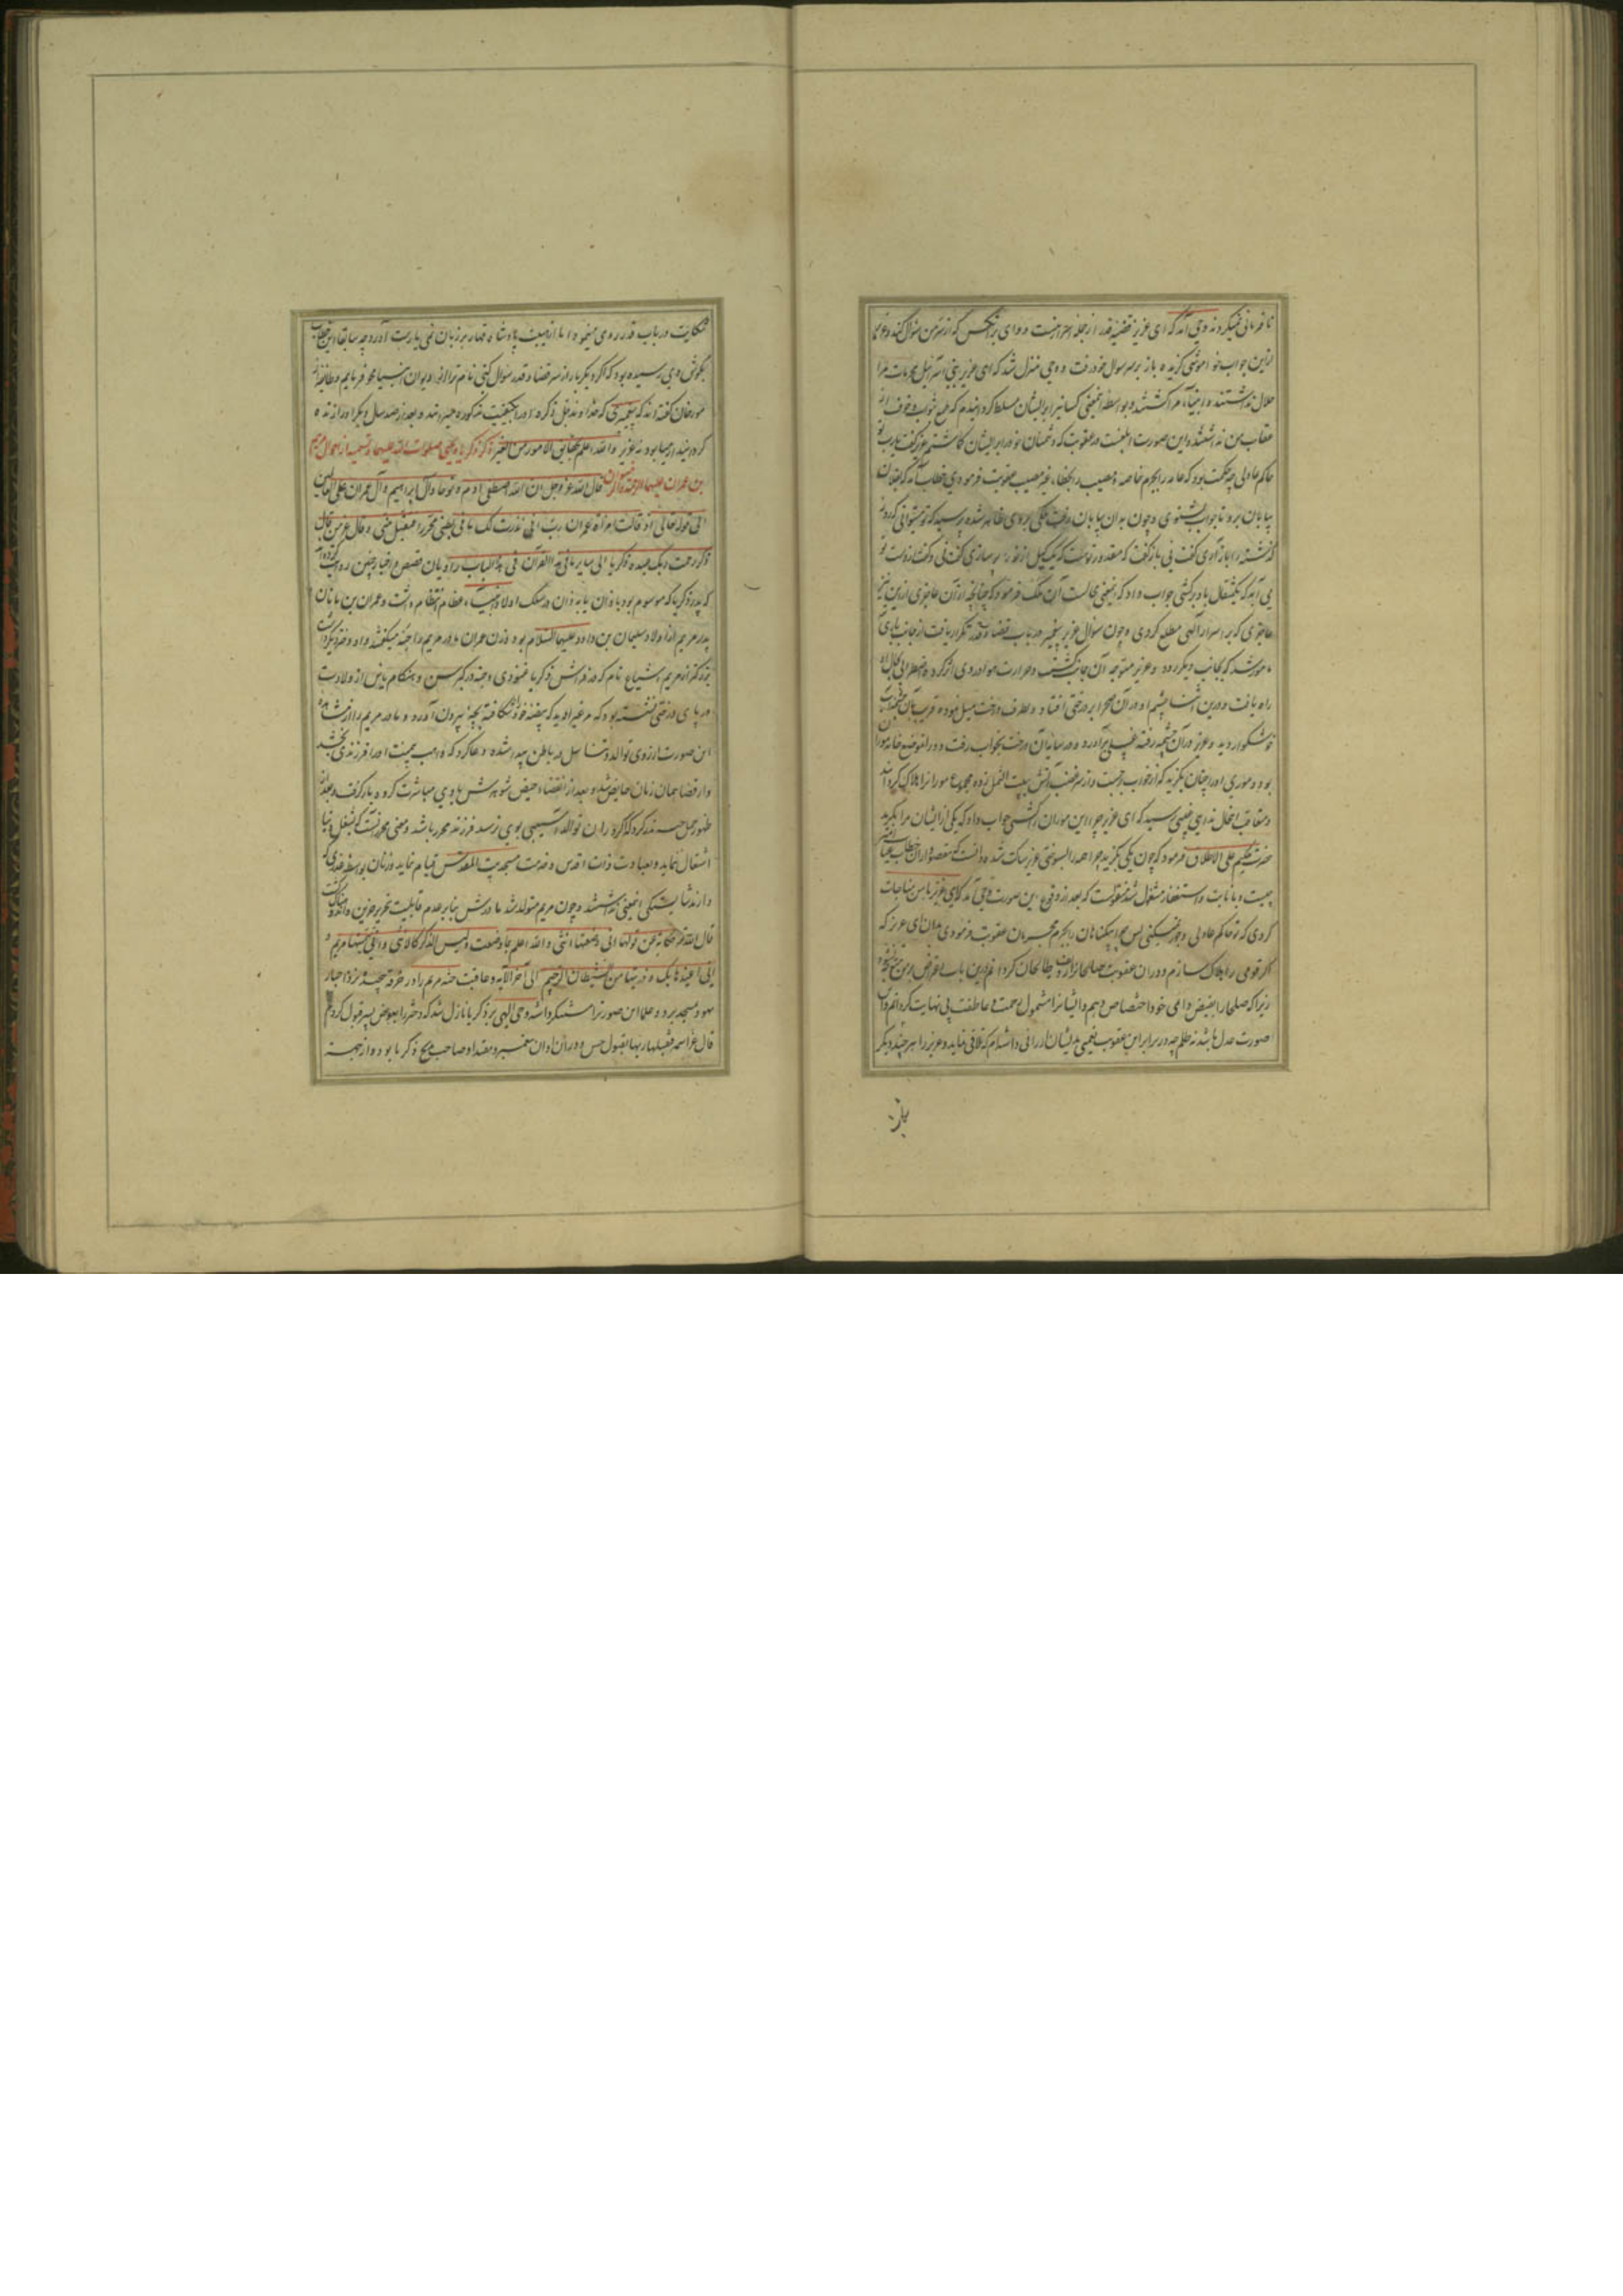 نافرمانی نمیکردند وحی آمد که ای عزیر قضیه قدر از جمله سر منست و وای بر آنکس که از سر من سؤال کند و عزیر
ازین جواب خاموشی گزیده باز بر سر سؤال خود رفت و وحی منزل شد که ای عزیر بنی اسرائیل محرمات مرا
حلال داشتند و انبیاء مرا کشتند و بواسطه اینمعنی کسانیرا بر ایشان مسلط کردانیدم که طمع ثواب و خوف از
عقاب من نداشتند و این صورت ابلغست در عقوبت که دشمنان خود را بر ایشان کماشتم عزیر گفت یا رب تو
حاکم عادلی چه حکمت بود که عامه را بجرم خاصه و مصیب را بخطاء غیر مصیب عقوبت فرمودی خطاب آمد که بفلان
بیابان برو تا جواب بشنوی و چون بدان بیابان رفت ملکی بروی ظاهر شده پرسید که تو میتوانی که روز
گذشته را باز آری گفت نی باز گفت که مقدور تو هست که یک کیل از نور پر سازی گفت نی و گفت از دست تو
می آید که یکمثقال باد بر کشی جواب داد که اینمعنی محالست آن ملک فرمود که چنانچه از آن عاجزی ازین نیز
عاجزی که بر اسرار الهی مطلع گردی و چون سؤال عزیر پیغمبر در باب قضا و قدر تکرار یافت از جانب باری
مامور شد که بجانب دیگر رود و عزیر متوجه آن جانب گشت و حرارت هوا در وی اثر کرده اضطرابی بحال او
راه یافت و درین اثنا چشم او در آن صحرا بر درختی افتاد و بطرف درخت میل نموده قریب بآن چشمه آب
خوشگوار دید و عزیر در آن چشمه رفته غسلی برآورد و در سایه آن درخت بخواب رفت و در انموضع خانه موران
بود و موری او را چنان بگزید که از خواب برجست و از سر غضب آتش ببیت النمل زده مجموع مورانرا هلاک گردانید
و متعاقب انحال ندای غیبی رسید که ای عزیر چرا این مورانرا کشتی جواب داد که یکی از ایشان مرا بگزید
حضرت حکیم علی الاطلاق فرمود که چون یکی بگزید چرا همه را بسوختی عزیر ساکت شده دانست که مقصود از ان خطاب عتاب
چیست و بانابت و استغفار مشغول شد منقولست که بعد از وقوع این صورت وحی آمد که ای عزیر با من مناجات
کردی که تو حاکم عادلی و جور نمیکنی پس چرا بیگناهان را بجرم مجرمان عقوبت فرمودی بدان ای عزیر که
اگر قومی را هلاک سازم و در ان عقوبت صلحا را ردیف طالحان گردانم درین باب اعتراض بر من متوجه
زیرا که صلحا را بفیض دایمی خود اختصاص دهم و ایشانرا مشمول رحمت و عاطفت بی نهایت گردانم و این
صورت عدل باشد نه ظلم چه در برابر این عقوبت نعیمی بدیشان ارزانی داشته ام که تلافی نماید و عزیر را هر چند دیگر
شکایت در باب قدر روی مینمود اما از هیبت پادشاه قهار بر زبان نمی یارست آورد و چه سابقا این خطاب
بگوش وی رسیده بود که اگر دیگر بار از سر قضا و قدر سؤال کنی نام ترا از دیوان انبیا محو فرمایم و طایفه از
مورخان گفته اند که پیغمبری که خداوند تبارک ذکره او را بکیفیت مذکوره میرانید و بعد از صد سال دیگر او را زنده
کردانید ارمیا بود نه عزیر والله اعلم بحقایق الامور من الغیر ذکر زکریا و یحیی صلوات الله علیهما و تسمیه از احوال مریم
بن عمران علیهما الرحمة و الرضوان قال الله عز و جل ان الله اصطفی ادم و نوحا و آل ابراهیم و آل عمران علی العالمین
الی قوله تعالی اذ قالت امرأة عمران رب انی نذرت لک ما فی بطنی محررا فتقبل منی و قال عز من قال
ذکر رحمت ربک عبده زکریا الی سایر ما فی هذا القرآن فی هذا الباب راویان قصص و اخبار چنین روایت کرده اند
که پدر زکریا که موسوم بود باذان یا برذان در سلک اولاد انبیاء عظام انتظام داشت و عمران بن ماثان
پدر مریم از اولاد سلیمان بن داود علیهما السلام بود و زن عمران مادر مریم را حنه میگفتند و او دختر دیگر داشت
بزرگتر از مریم اشیاع نام که در فراش زکریا غنودی و حنه در کبر سن و هنگام یاس از ولادت
در پای درختی نشسته بود که مرغی را دید که بیضه خود شکافته بچه بیرون آورد و مادر مریم را از مشاهده
این صورت ارزوی توالد و تناسل در باطن پیدا شده دعا کرد که واهب بیمنت او را فرزندی بخشد
و از قضا همان زمان حایض شد و بعد از انقضاء حیض شوهرش با وی مباشرت کرده بار گرفت و بعد از
ظهور حمل حنه نذر کرد که اگر دران توالد آسیبی بوی نرسد فرزند محرر باشد و معنی محرر آنست که بشغل دنیا
اشتغال ننماید و بعبادت ذات اقدس و خدمت مسجد بیت المقدس قیام نماید و زنان بواسطه عذری که
دارند شایستگی اینمعنی نداشتند و چون مریم متولد شد مادرش بنابر عدم قابلیت تحریر حزین و اندوهناک گشت
قال الله تعالی حکایة عن قولها انی وضعتها انثی والله اعلم بما وضعت و لیس الذکر کالانثی و انی سمیتها مریم و
انی اعیذها بک و ذریتها من الشیطان الرجیم الی آخر الآیة و عاقبت حنه مریم را در خرقه پیچیده نزد احبار
یهود بمسجد برد و علما این صورترا مستنکر داشته وحی الهی بر زکریا نازل شد که دختر را بعوض پسر قبول کردیم
قال عز اسمه فتقبلها ربها بقبول حسن و در آن اوان پیغمبر و مقتدا و صاحب مذبح زکریا بود و از جهت